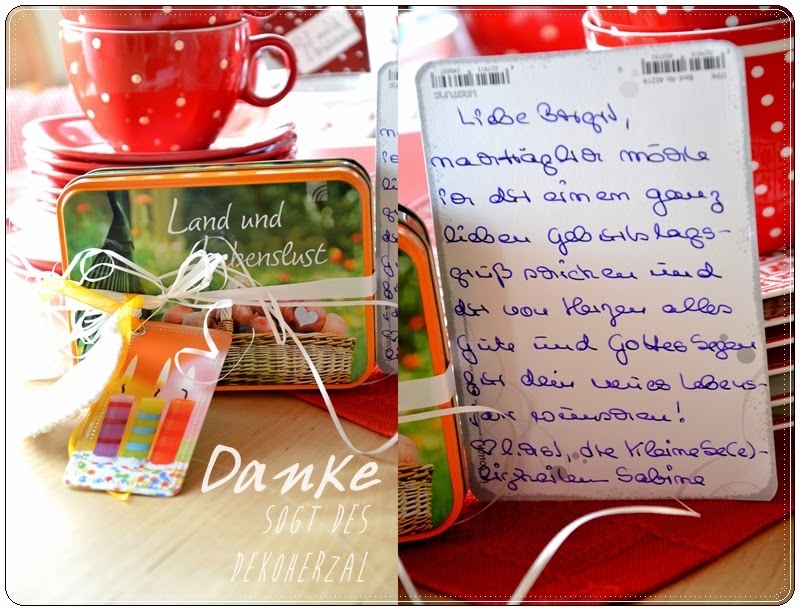 Land und
Lebenslust
Danke
SOGT DES
DEKOHERZAL
Liebe Birgit,
nachträglich möchte
ich dir einen ganz
lieben Geburtstags-
gruß schicken und
dir von Herzen alles
Gute und Gottes Segen
für dein neues Lebens-
jahr wünschen!
Alles Liebe, die kleine Se(e)-
Sabine